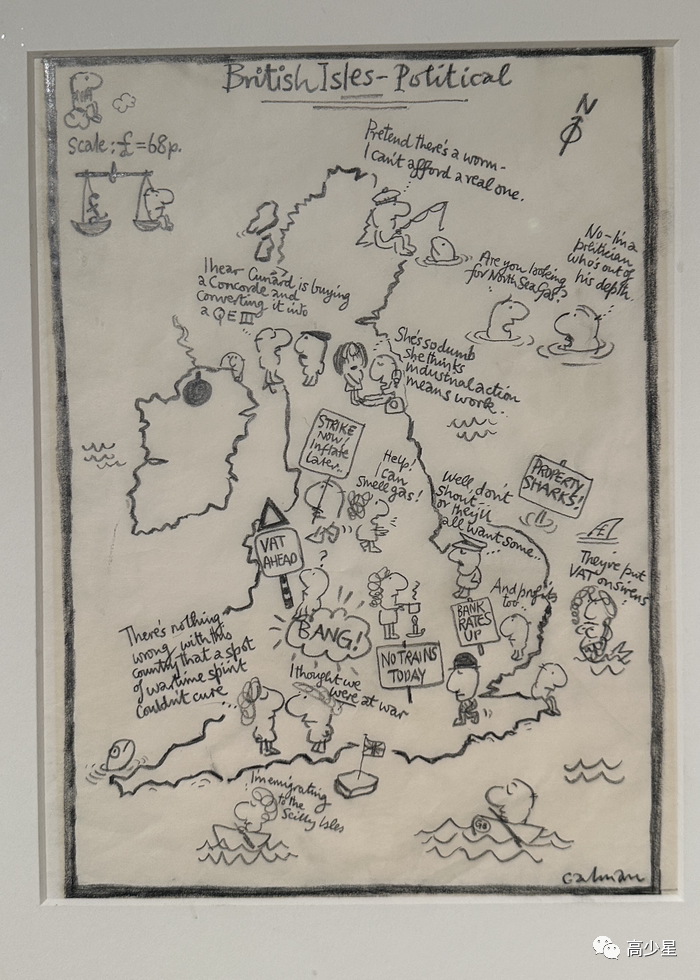 British Isles - Political
N
Scale: £=68p.
Pretend there's a worm -
I can't afford a real one.
No-I'm a
politician
who's out of
his depth.
Are you looking
for North Sea Gas?
I hear Cunard is buying
a Concorde and
converting it into
a QE III
She's so dumb
she thinks
industrial action
means work..
STRIKE
NOW!
Inflate
Later..
Help!
I can
smell gas!
Well don't
shout -
or they'll
all want some...
PROPERTY
SHARKS!
£
VAT
AHEAD
?
They've put
VAT on sirens
And profits
too..
BANK
RATES
UP
BANG!
NO TRAINS
TODAY
There's nothing
wrong with this
country that a spot
of wartime spirit
couldn't cure
I thought we
were at war
I'm emigrating
to the
Scilly Isles
GB
Calman
高少星